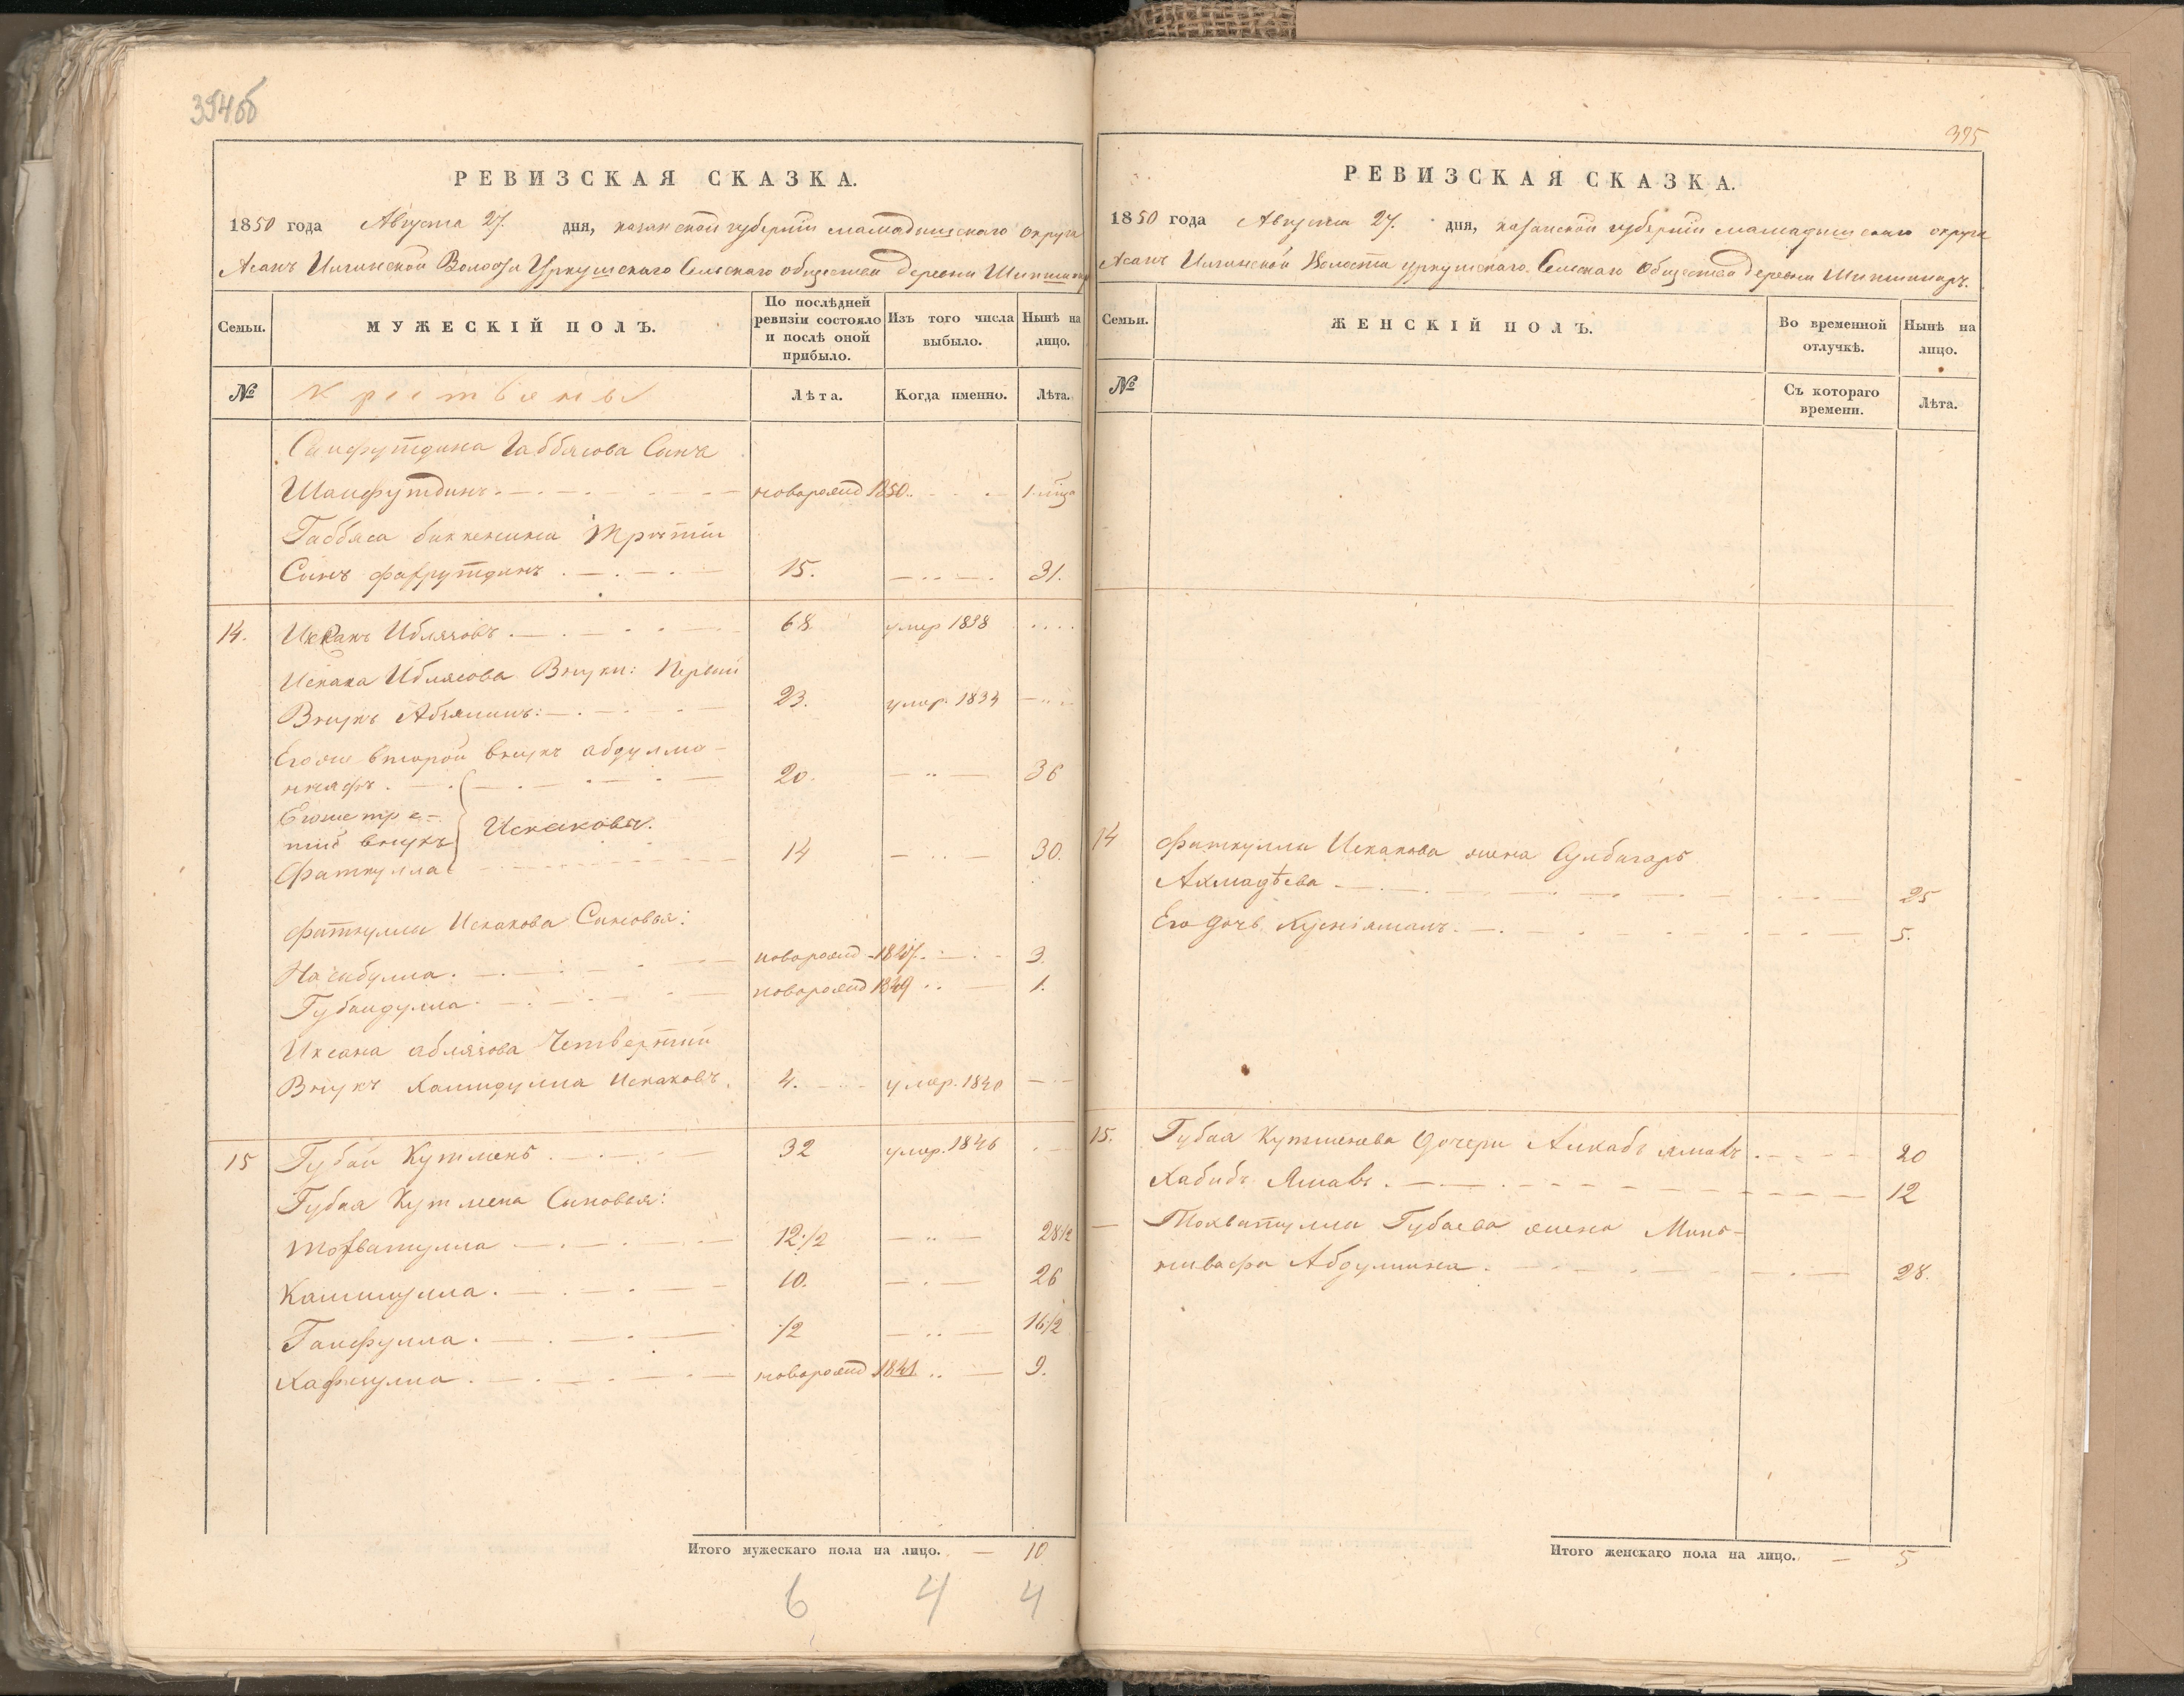 394об
РЕВИЗСКАЯ СКАЗКА.
1850 года Августа 27. дня, казанской губернiи мамадышскаго округа
Асанъ Илгинской Волости Уркушскаго Сельскаго общества деревни
Семьи.
МУЖЕСКІЙ ПОЛЪ.
По послѣдней ревизіи состояло и послѣ оной прибыло.
Изъ того числа выбыло.
Нынѣ на лицо.
№
Крестьяны
Лѣта.
Когда именно.
Лѣта.
Саифутдина Габбясова Сынъ
Шаифутдинъ новорожд 1850
Габбяса биккенина Третiй
Сынъ фахрутдинъ 15. 31.
14. Иблясовъ 68 умер 1838
Искака Иблясова Внуки: Первый
Внукъ 23. умер. 1834
Егоже второй внукъ абдулма-
ннафъ 20. 36
Егоже тре-
тiй внукъ Искаковы.
Фаткулла 14 30.
Фаткуллы Искакова Сыновья:
Насибулла новорожд 1847 3
Губайдулла новорожд 1849 1.
Четвертый
Внукъ Хамидулла Искаковъ. 4. умер. 1840
15 Губай Кутменъ 32 умер. 1846
Губая Кутмена Сыновья:
Тохватулла 12 1/2 28 1/2
Калимулла 10. 26
Гаифулла 1/2 16 1/2
Хафизулла новорожд 1841 9.
Итого мужескаго пола на лицо. — 10
6 4 4
395
РЕВИЗСКАЯ СКАЗКА.
1850 года Августа 27. дня, казанской губернiи мамадышскаго округа
Асанъ Илгинской Волости уркушскаго Сельскаго Общества деревни Шыпшинаръ.
Семьи.
ЖЕНСКІЙ ПОЛЪ.
Во временной отлучкѣ.
Нынѣ на лицо.
№
Съ котораго времени.
Лѣта.
14 Фаткуллы Искакова жена Гулбагаръ
Ахмадѣева 25
Его дочь 5.
15. Губая Кутменева дочери 20
Хабибъ Ямалъ 12
— Тохватуллы Губаева жена Минь-
нивафа Абдулмина 28.
Итого женскаго пола на лицо. — 5